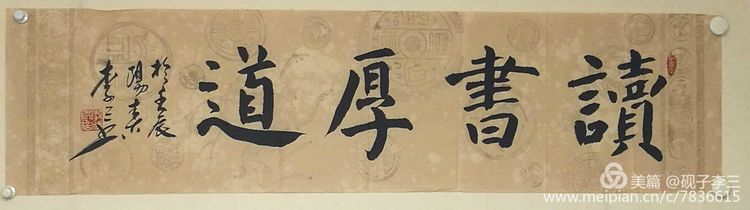 讀書厚道
於壬辰
陽春
李三書
美篇 @砚子李三
www.meipian.cn/c/7836615